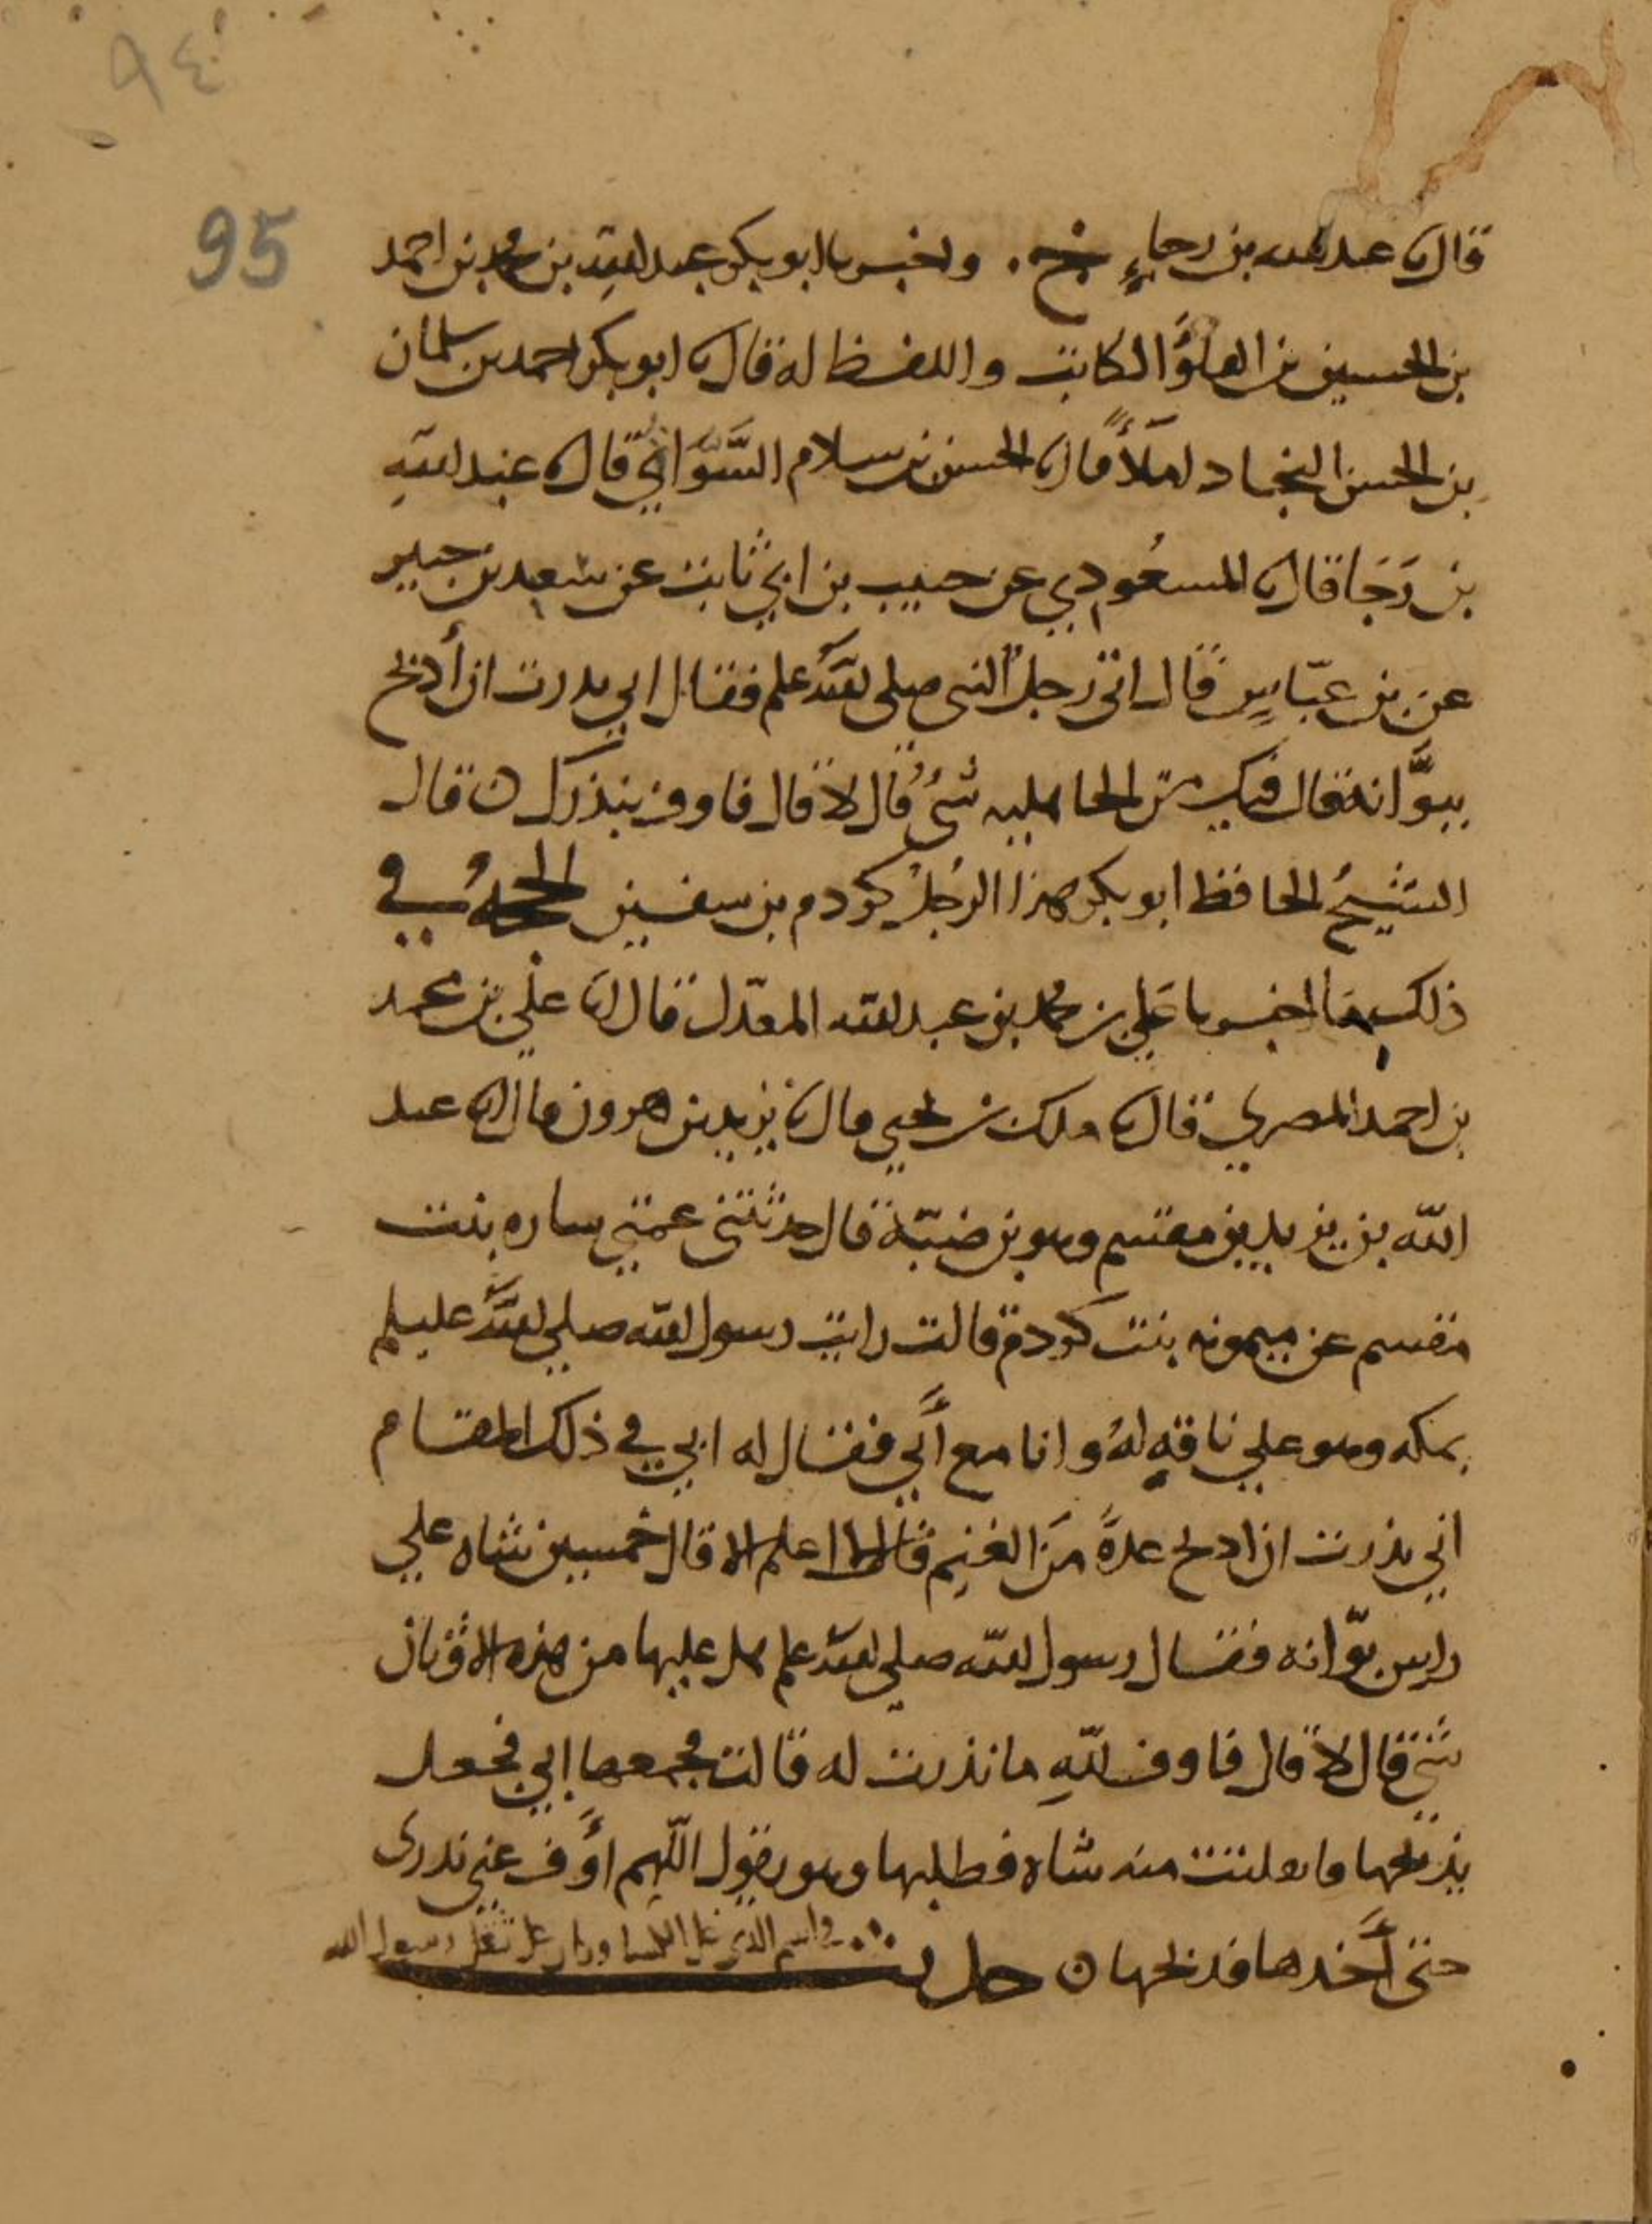 ٩٤
95
قال نا عبد الله بن رجاءٍ ح . واخبرنا ابو بكر عبد الله بن محمد بن احمد
بن الحسين بن الكاتب واللفظ له قال نا ابو بكر احمد بن سلمان
بن الحسن النجاد املاً قال نا الحسن بن سلام السَّوَّاق قال نا عبد الله
بن رَجَا قال نا المسعُودي عن حبيب بن ابي ثابت عن سعيد بن جبير
عن بن عبّاسٍ قال اتى رجلٌ النبي صلى الله علم فقال اني نذرت ان أذبح
ببوَّانة قال من الجاهليه شىءٌ قال لا قال فاوف بنذرك ن قال
الشيخُ الحافظ ابو بكر هذا الرجلُ كردم بن سفين الحجةُ في
ذلك ما اخبرنا علي بن محمد بن عبد الله المعدّل قال نا علي بن محمد
بن احمد المصري قال نا ملك بن يحيي قال نا يزيد بن هرون قال نا عبد
الله بن يزيد بن مقسم وهو بن ضبّة قال حدثتني عمتي ساره بنت
مقسم عن ميمونه بنت كردم قالت رايت رسول الله صلي الله عليلم
بمكه وهو علي ناقةٍ لهُ وانا مع أَبي فقال له ابي في ذلك المقام
اني نذرت ان اذبح عدةً منَ الغنم قال لا اعلم الا قال خمسين شاه علي
راس بوّانه فقال رسول الله صلي الله علم هل عليها من هذه الاوثان
شيٌ قال لا قال فاوف للهِ ما نذرت له قالت فجمعها ابي فجعل
يذبحها وانفلتت منه شاه فطلبها وهو يقول اللهم أَوف عني نذرى
حتى أَخذها فذبحها ن حديث